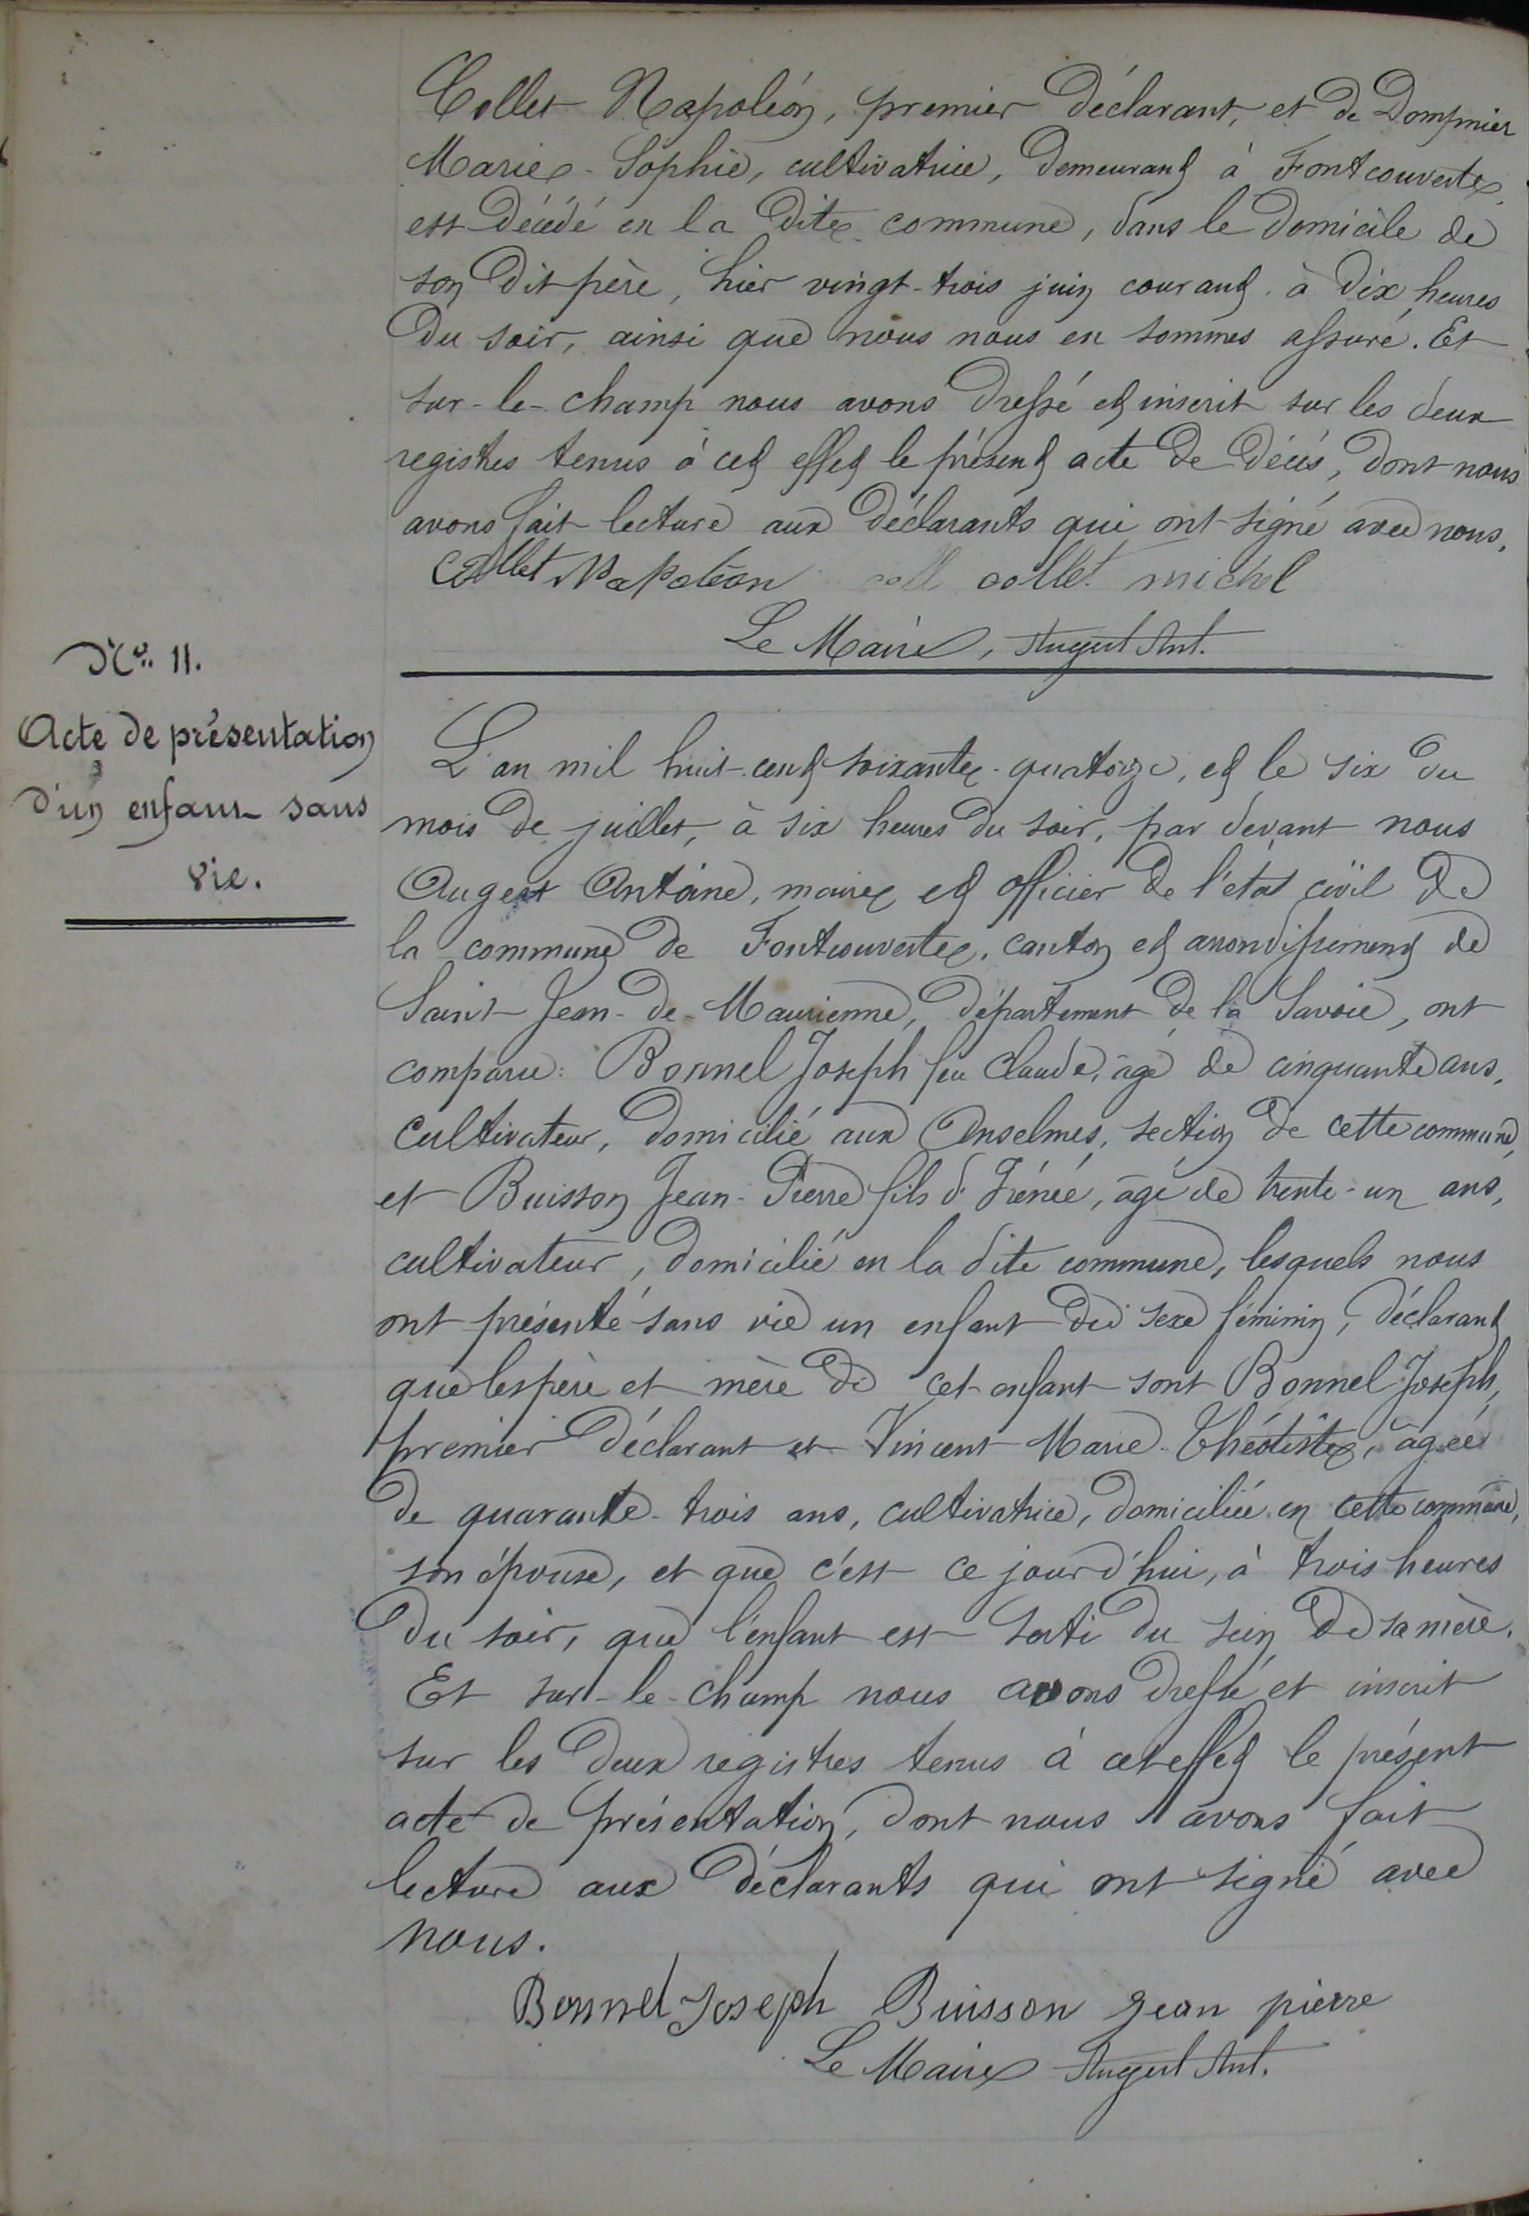 Collet Napoléon, premier déclarant, et de Dompnier
Marie-Sophie, cultivatrice, demeurant à Fontcouverte,
est décédé en la dite commune, dans le domicile de
son dit père, hier vingt-trois juin courant à dix heures
du soir, ainsi que nous nous en sommes assuré. Et
sur-le-champ nous avons dressé et inscrit sur les deux
registres tenus à cet effet le présent acte de décès, dont nous
avons fait lecture aux déclarants qui ont signé avec nous.
Collet Napoléon coll collet michel
Le Maire, Augert Ant.
No. 11.
Acte de présentation
d'un enfant sans
vie.
L'an mil huit-cent soixante-quatorze, et le six du
mois de juillet, à six heures du soir, par devant nous
Augert Antoine, maire et officier de l'état civil de
la commune de Fontcouverte, canton et arrondissement de
Saint-Jean-de-Maurienne, département de la Savoie, ont
comparu: Bonnel Joseph feu Claude, âgé de cinquante ans,
cultivateur, domicilié aux Anselmes, section de cette commune,
et Buisson Jean-Pierre fils d'Irénée, âgé de trente-un ans,
cultivateur, domicilié en la dite commune, lesquels nous
ont présenté sans vie un enfant du sexe féminin, déclarant
que les père et mère de cet enfant sont Bonnel Joseph,
premier déclarant et Vincent Marie-Théotiste, âgée
de quarante-trois ans, cultivatrice, domiciliée en cette commune,
son épouse, et que c'est ce jourd'hui, à trois heures
du soir, que l'enfant est sorti du sein de sa mère.
Et sur-le-champ nous avons dressé et inscrit
sur les deux registres tenus à cet effet le présent
acte de présentation, dont nous avons fait
lecture aux déclarants qui ont signé avec
nous.
Bonnel Joseph Buisson jean pierre
Le Maire Augert Ant.